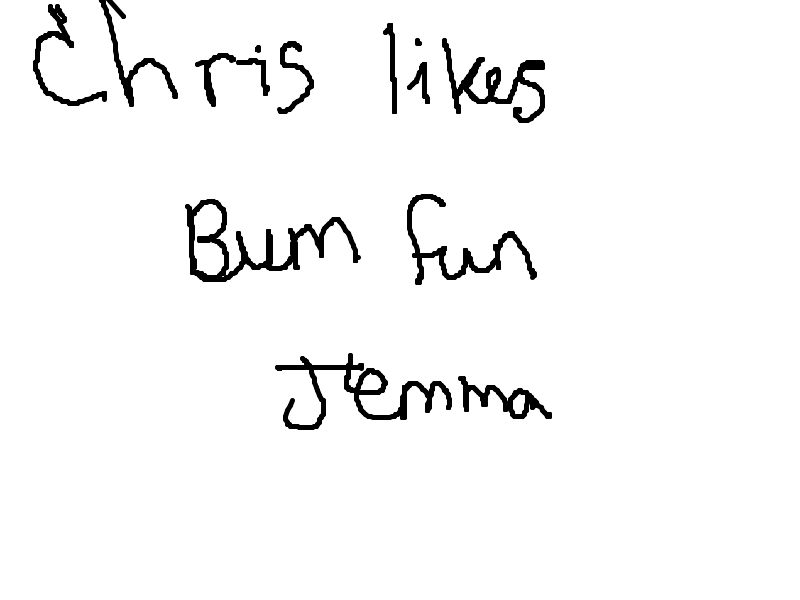 Chris likes
Bum fun
Jemma